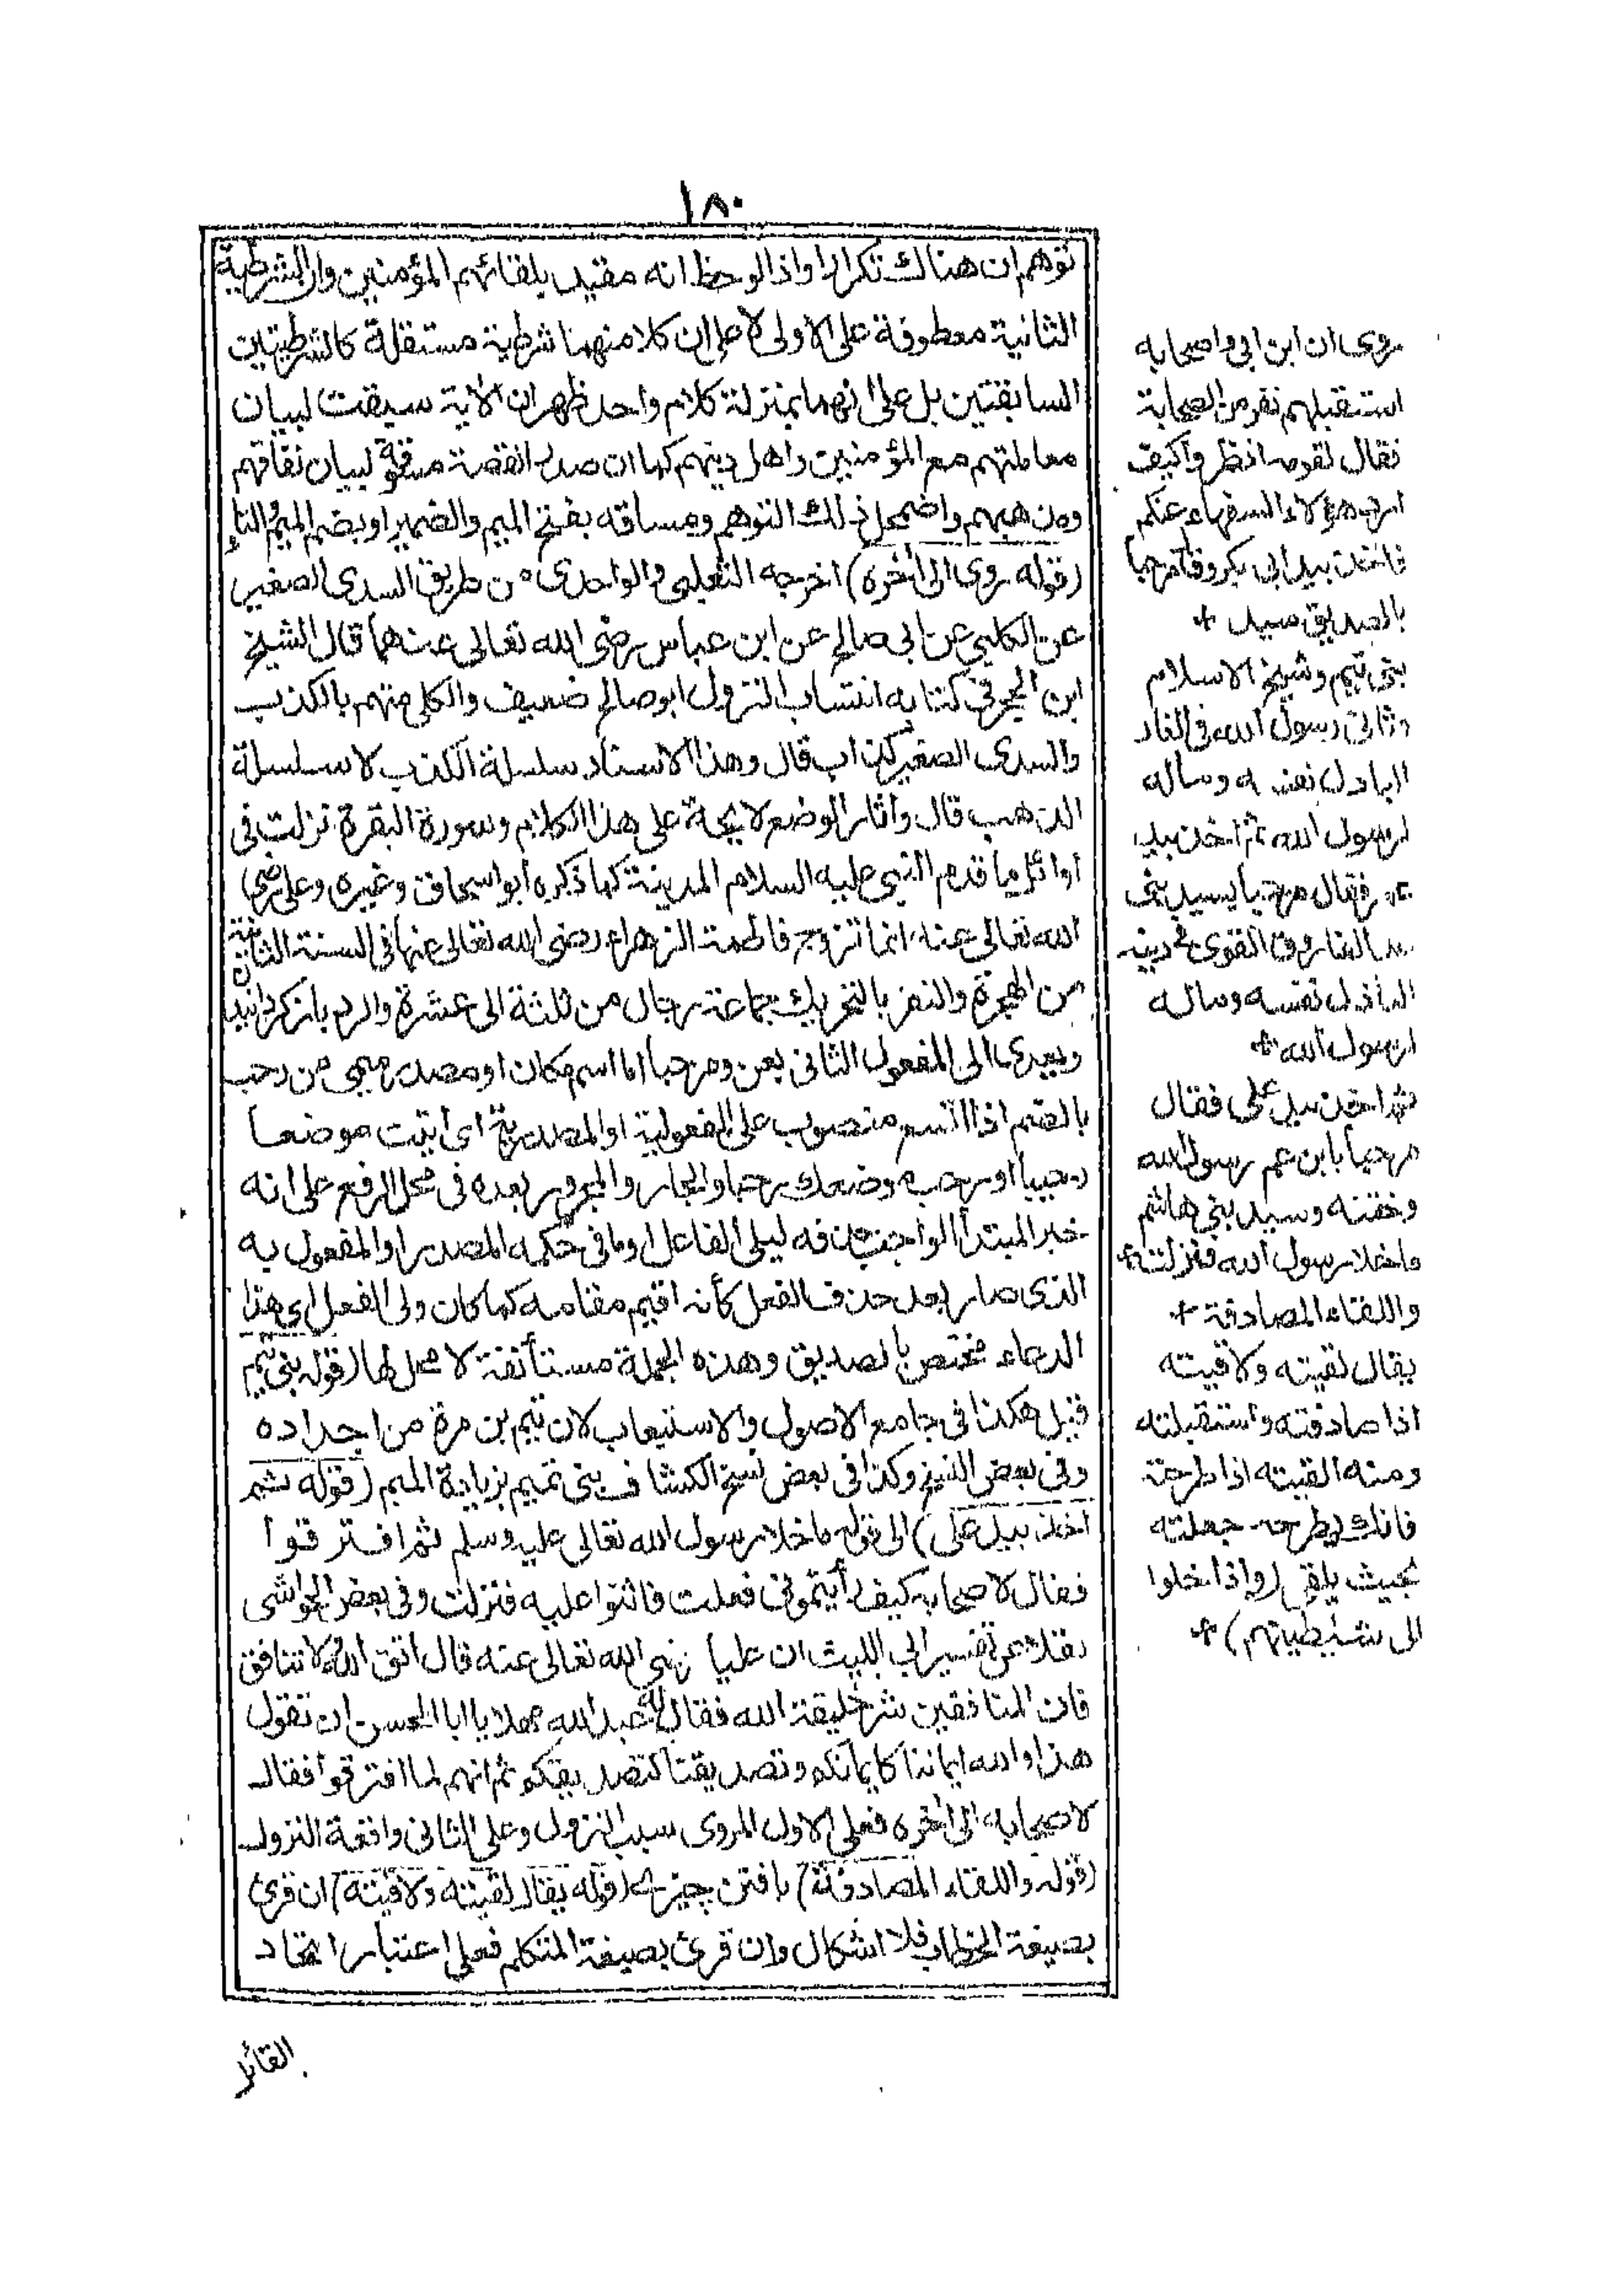 ١٨٠
توهم ان هناك تكرارا واذا لوحظ انه مقيد بلقائهم المؤمنين وان الشرطية
الثانية معطوفة على الاولى لا على ان كلا منهما شرطية مستقلة كالشرطيتين
السابقتين بل على انهما بمنزلة كلام واحد ظهر ان الآية سيقت لبيان
معاملتهم مع المؤمنين واهل دينهم كما ان صدر القصة مسوقة لبيان نفاقهم
ومذهبهم واضمحل ذلك التوهم ومساقه بفتح الميم والضمير او بضم الميم والتاء
(قوله روى الى آخره) اخرجه الثعلبى والواحدى من طريق السدى الصغير
عن الكلبي عن ابى صالح عن ابن عباس رضى الله تعالى عنهما قال الشيخ
ابن الحجر فى كتابه انتساب النزول ابو صالح ضعيف والكلبى متهم بالكذب
والسدى الصغير كذاب قال وهذا الاسناد سلسلة الكذب لا سلسلة
الذهب قال وآثار الوضع لائحة على هذا الكلام وسورة البقرة نزلت فى
اوائل ما قدم النبى عليه السلام المدينة كما ذكره ابو اسحاق وغيره وعلى رضى
الله تعالى عنه انما تزوج فاطمة الزهراء رضى الله تعالى عنها فى السنة الثانية
من الهجرة والنفر بالتحريك جماعة رجال من ثلثة الى عشرة والرد باز كردانيد
ويعدى الى المفعول الثانى بعن ومرحبا اما اسم مكان او مصدر ميمى من رحب
بالضم اذا اتسع منصوب على المفعولية او المصدرية اى اتيت موضعا
رحيبا او رحب موضعك رحبا والجار والمجرور بعده فى محل الرفع على انه
خبر المبتدأ الواجب حذفه ليلى الفاعل او ما فى حكمه المصدر او المفعول به
الذى صار بعد حذف الفعل كأنه اقيم مقامه كما كان ولى الفعل اى هذا
الدعاء مختص بالصديق وهذه الجملة مستأنفة لا محل لها (قوله بنى تيم
قيل هكذا فى جامع الاصول والاستيعاب لان تيم بن مرة من اجداده
وفى بعض النسخ وكذا فى بعض نسخ الكشاف بنى تميم بزيادة الميم (قوله ثم
اخذ بيد على) الى قوله ما خلا رسول الله تعالى عليه وسلم ثم افترقوا
فقال لاصحابه كيف رأيتمونى فعلت فاثنوا عليه فنزلت وفى بعض الحواشى
نقلا عن تفسير ابى الليث ان عليا رضى الله تعالى عنه قال اتق الله ولا تنافق
فان المنافقين شر خليقة الله فقال له عبد الله مهلا يا ابا الحسن ان تقول
هذا والله ايماننا كايمانكم وتصديقنا كتصديقكم ثم انهم لما افترقوا فقال
لاصحابه الى آخره فعلى الاول المروى سبب النزول وعلى الثانى واقعة النزول
(قوله واللقاء المصادفة) يافتن چيزى (قوله يقال لقيته ولاقيته) ان قرئ
بصيغة الخطاب فلا اشكال وان قرئ بصيغة المتكلم فعلى اعتبار اتحاد
القائل
روى ان ابن ابى واصحابه
استقبلهم نفر من الصحابة
فقال لقومه انظروا كيف
ارد هؤلاء السفهاء عنكم
فاخذ بيد ابى بكر وقال مرحبا
بالصديق سيد +
بنى تيم وشيخ الاسلام
وثانى رسول الله فى الغار
الباذل نفسه وماله
لرسول الله ثم اخذ بيد
عمر فقال مرحبا بسيد بنى
عدى الفاروق القوى فى دينه
الباذل نفسه وماله
لرسول الله +
ثم اخذ بيد على فقال
مرحبا يا بن عم رسول الله
وختنه وسيد بنى هاشم
ما خلا رسول الله فنزلت +
واللقاء المصادفة +
يقال لقيته ولاقيته
اذا صادفته واستقبلته
ومنه القيته اذا طرحته
فانك بطرحه جعلته
بحيث يلقى (واذا خلوا
الى شيطينهم) +